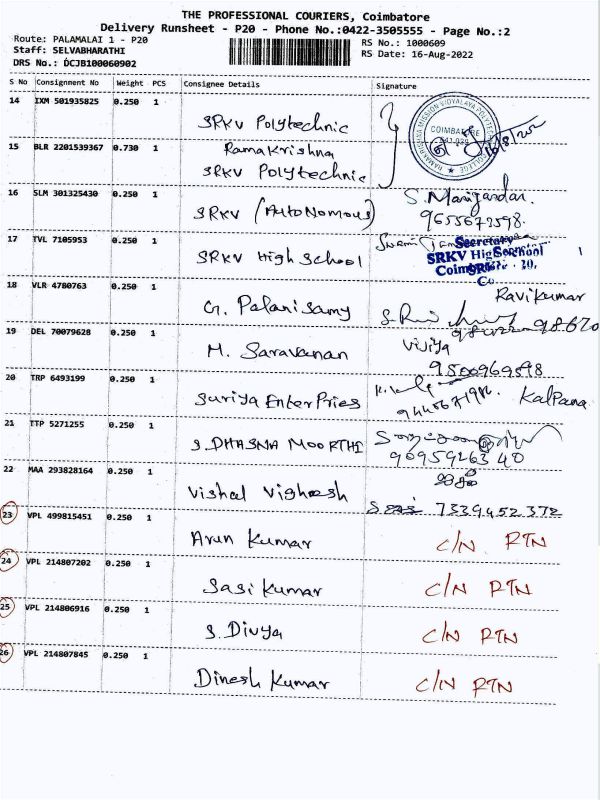 THE PROFESSIONAL COURIERS, Coimbatore
Delivery Runsheet - P20 - Phone No.:0422-3505555 - Page No.:2
Route: PALAMALAI 1 - P20
RS No.: 1000609
Staff: SELVABHARATHI
RS Date: 16-Aug-2022
DRS No.: DCJB100060902
S No Consignment No Weight PCS Consignee Details Signature
14 IXM 501935825 0.250 1
SRKV Polytechnic
COIMBATORE
16/8/202
15 BLR 2201539367 0.730 1
Ramakrishna
SRKV Polytechnic
16 SLM 301325430 0.250 1
SRKV (AutoNomous)
S. Manigandan.
9655673598.
17 TVL 7105953 0.250 1
SRKV High School
Swami
Secretary
SRKV High School
18 VLR 4780763 0.250 1
G. Palanisamy
Ravikumar
19 DEL 70079628 0.250 1
M. Saravanan
Vijiya
9500969598
20 TRP 6493199 0.250 1
Suriya EnterPries
9445671982
Kalpana
21 TTP 5271255 0.250 1
S. DHASNA MOORTHI
9095926340
22 MAA 293828164 0.250 1
Vishal Vighnesh
7339452372
23 VPL 499815451 0.250 1
Arun Kumar
C/N RTN
24 VPL 214807202 0.250 1
Sasi Kumar
C/N RTN
25 VPL 214806916 0.250 1
S. Divya
C/N RTN
26 VPL 214807845 0.250 1
Dinesh Kumar
C/N RTN